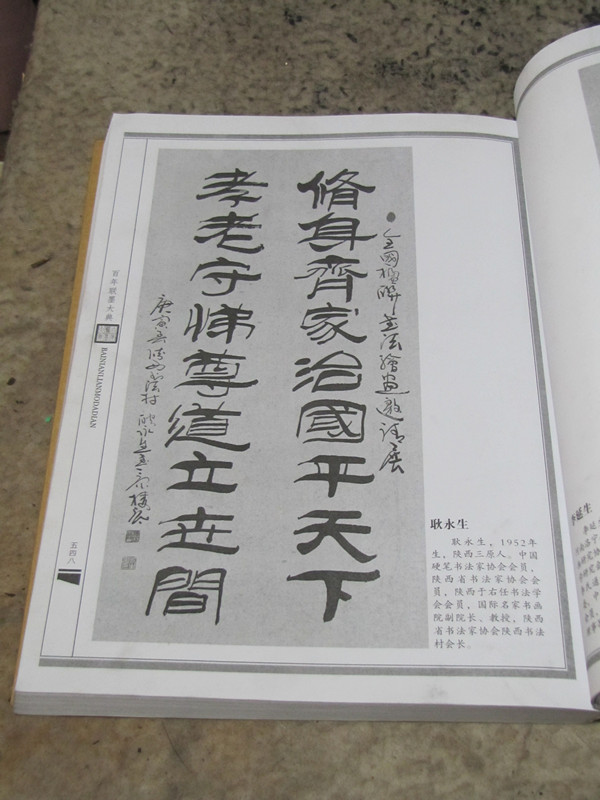 全國楹聯書法繪畫邀請展
脩身齊家治國平天下
孝老守悌尊道立世間
庚寅
百年联墨大典
BAINIANLIANMODADIAN
五四八
耿永生
耿永生，1952年
生，陕西三原人。中国
硬笔书法家协会会员，
陕西省书法家协会会
员，陕西于右任书法学
会会员，国际名家书画
院副院长、教授，陕西
省书法家协会陕西书法
村会长。